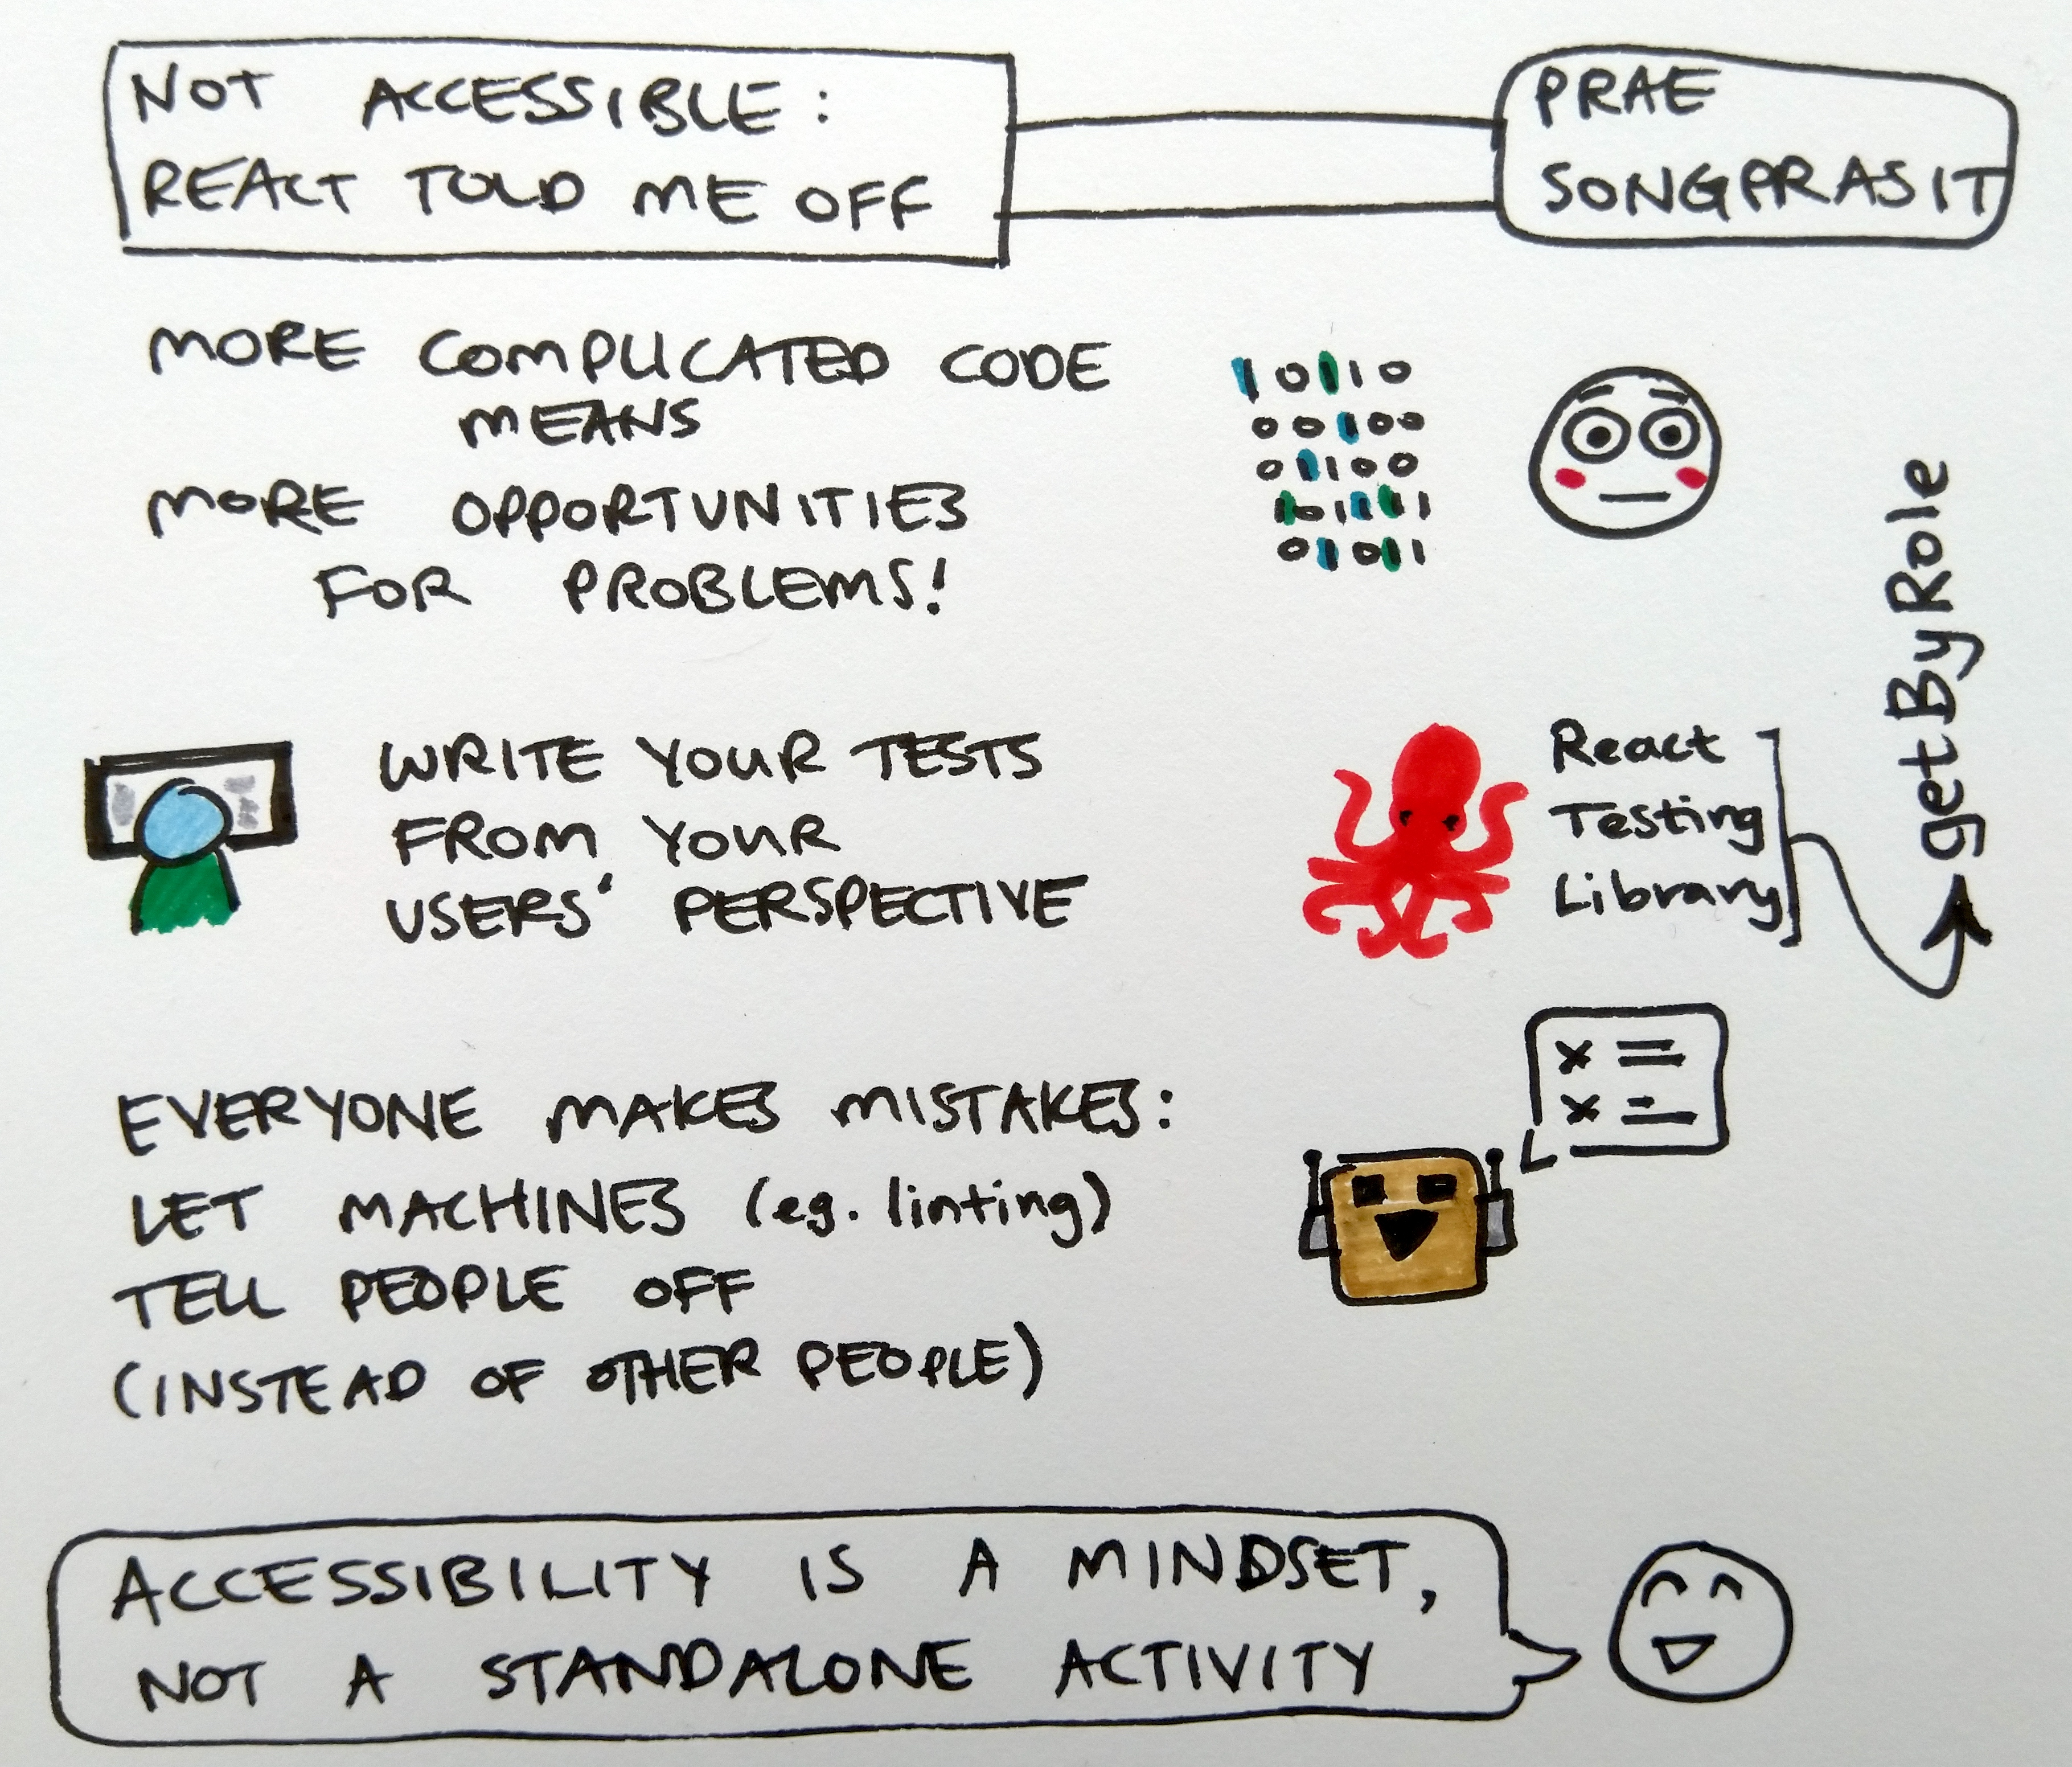 NOT ACCESSIBLE:
REACT TOLD ME OFF
PRAE
SONGPRASIT
MORE COMPLICATED CODE
MEANS
MORE OPPORTUNITIES
FOR PROBLEMS!
10110
00100
01100
101111
01011
WRITE YOUR TESTS
FROM YOUR
USERS' PERSPECTIVE
React
Testing
Library
getByRole
EVERYONE MAKES MISTAKES:
LET MACHINES (eg. linting)
TELL PEOPLE OFF
(INSTEAD OF OTHER PEOPLE)
ACCESSIBILITY IS A MINDSET,
NOT A STANDALONE ACTIVITY